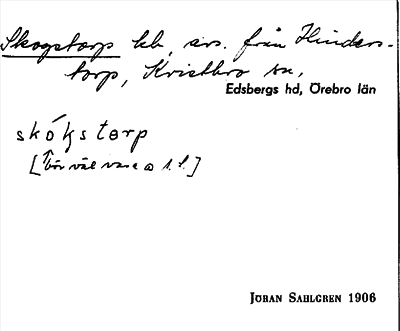 Skogstorp hb, avs. från Hinders-
torp, Kvistbro sn,
Edsbergs hd, Örebro län
skókstorp
[bör väl vara a s. l.]
JÖRAN SAHLGREN 1906